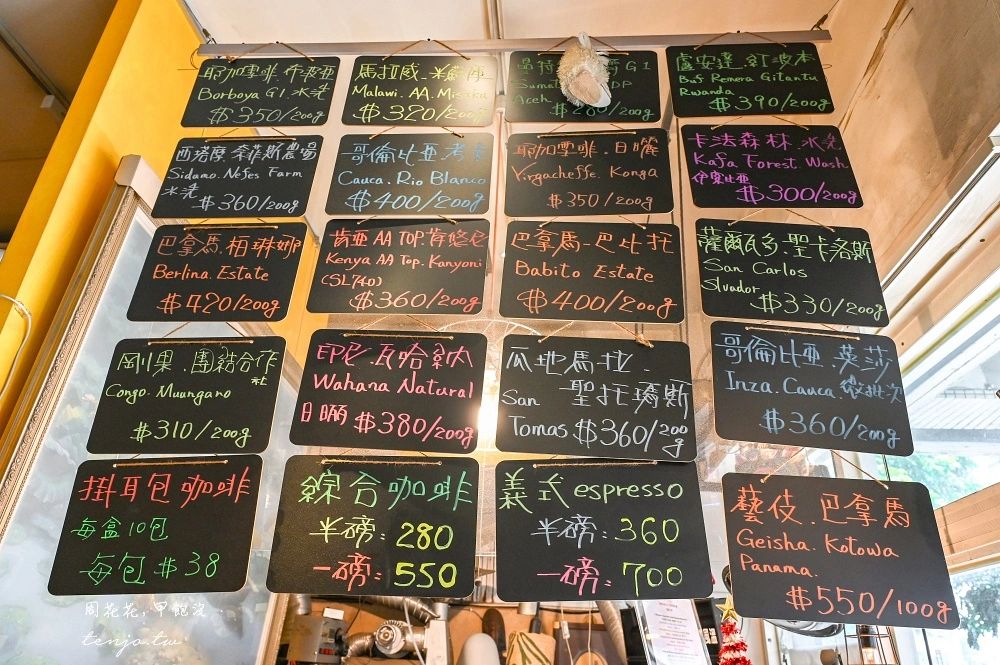 耶加雪啡.弁波亞
Borboya G1.水洗
$350/200g
馬拉威.米
Malawi.AA.Misuku
$320/200g
曼特 G1
Sumat DP
Aceh
$280/200g
盧安達.紅波本
Buf Remera Gitantu
Rwanda
$390/200g
西塔摩.奈菲斯農場
Sidamo.Nefes Farm
水洗
$360/200g
哥倫比亞.考卡
Cauca.Rio Blanco
$400/200g
耶加雪啡.日曬
Yirgacheffe.Konga
$350/200g
卡法森林.水洗
Kafa Forest Wash
伊索比亞
$300/200g
巴拿馬.柏琳娜
Berlina Estate
$420/200g
肯亞AA TOP.肯悠尼
Kenya AA Top.Kanyoni
(SL740)
$360/200g
巴拿馬-巴比托
Babito Estate
$400/200g
薩爾瓦多.聖卡洛斯
San Carlos
Slvador
$330/200g
剛果.團結合作
社
Congo.Muungano
$310/200g
印尼.瓦哈納
Wahana Natural
日曬 $380/200g
瓜地馬拉.
San 聖托瑪斯
Tomas $360/200g
哥倫比亞.茵莎
Inza.Cauca.微批次
$360/200g
掛耳包咖啡
每盒10包
每包$38
綜合咖啡
半磅:280
一磅:550
義式espresso
半磅:360
一磅:700
藝伎.巴拿馬
Geisha.Kotowa
Panama.
$550/100g
周花花,甲飽沒
tenjo.tw